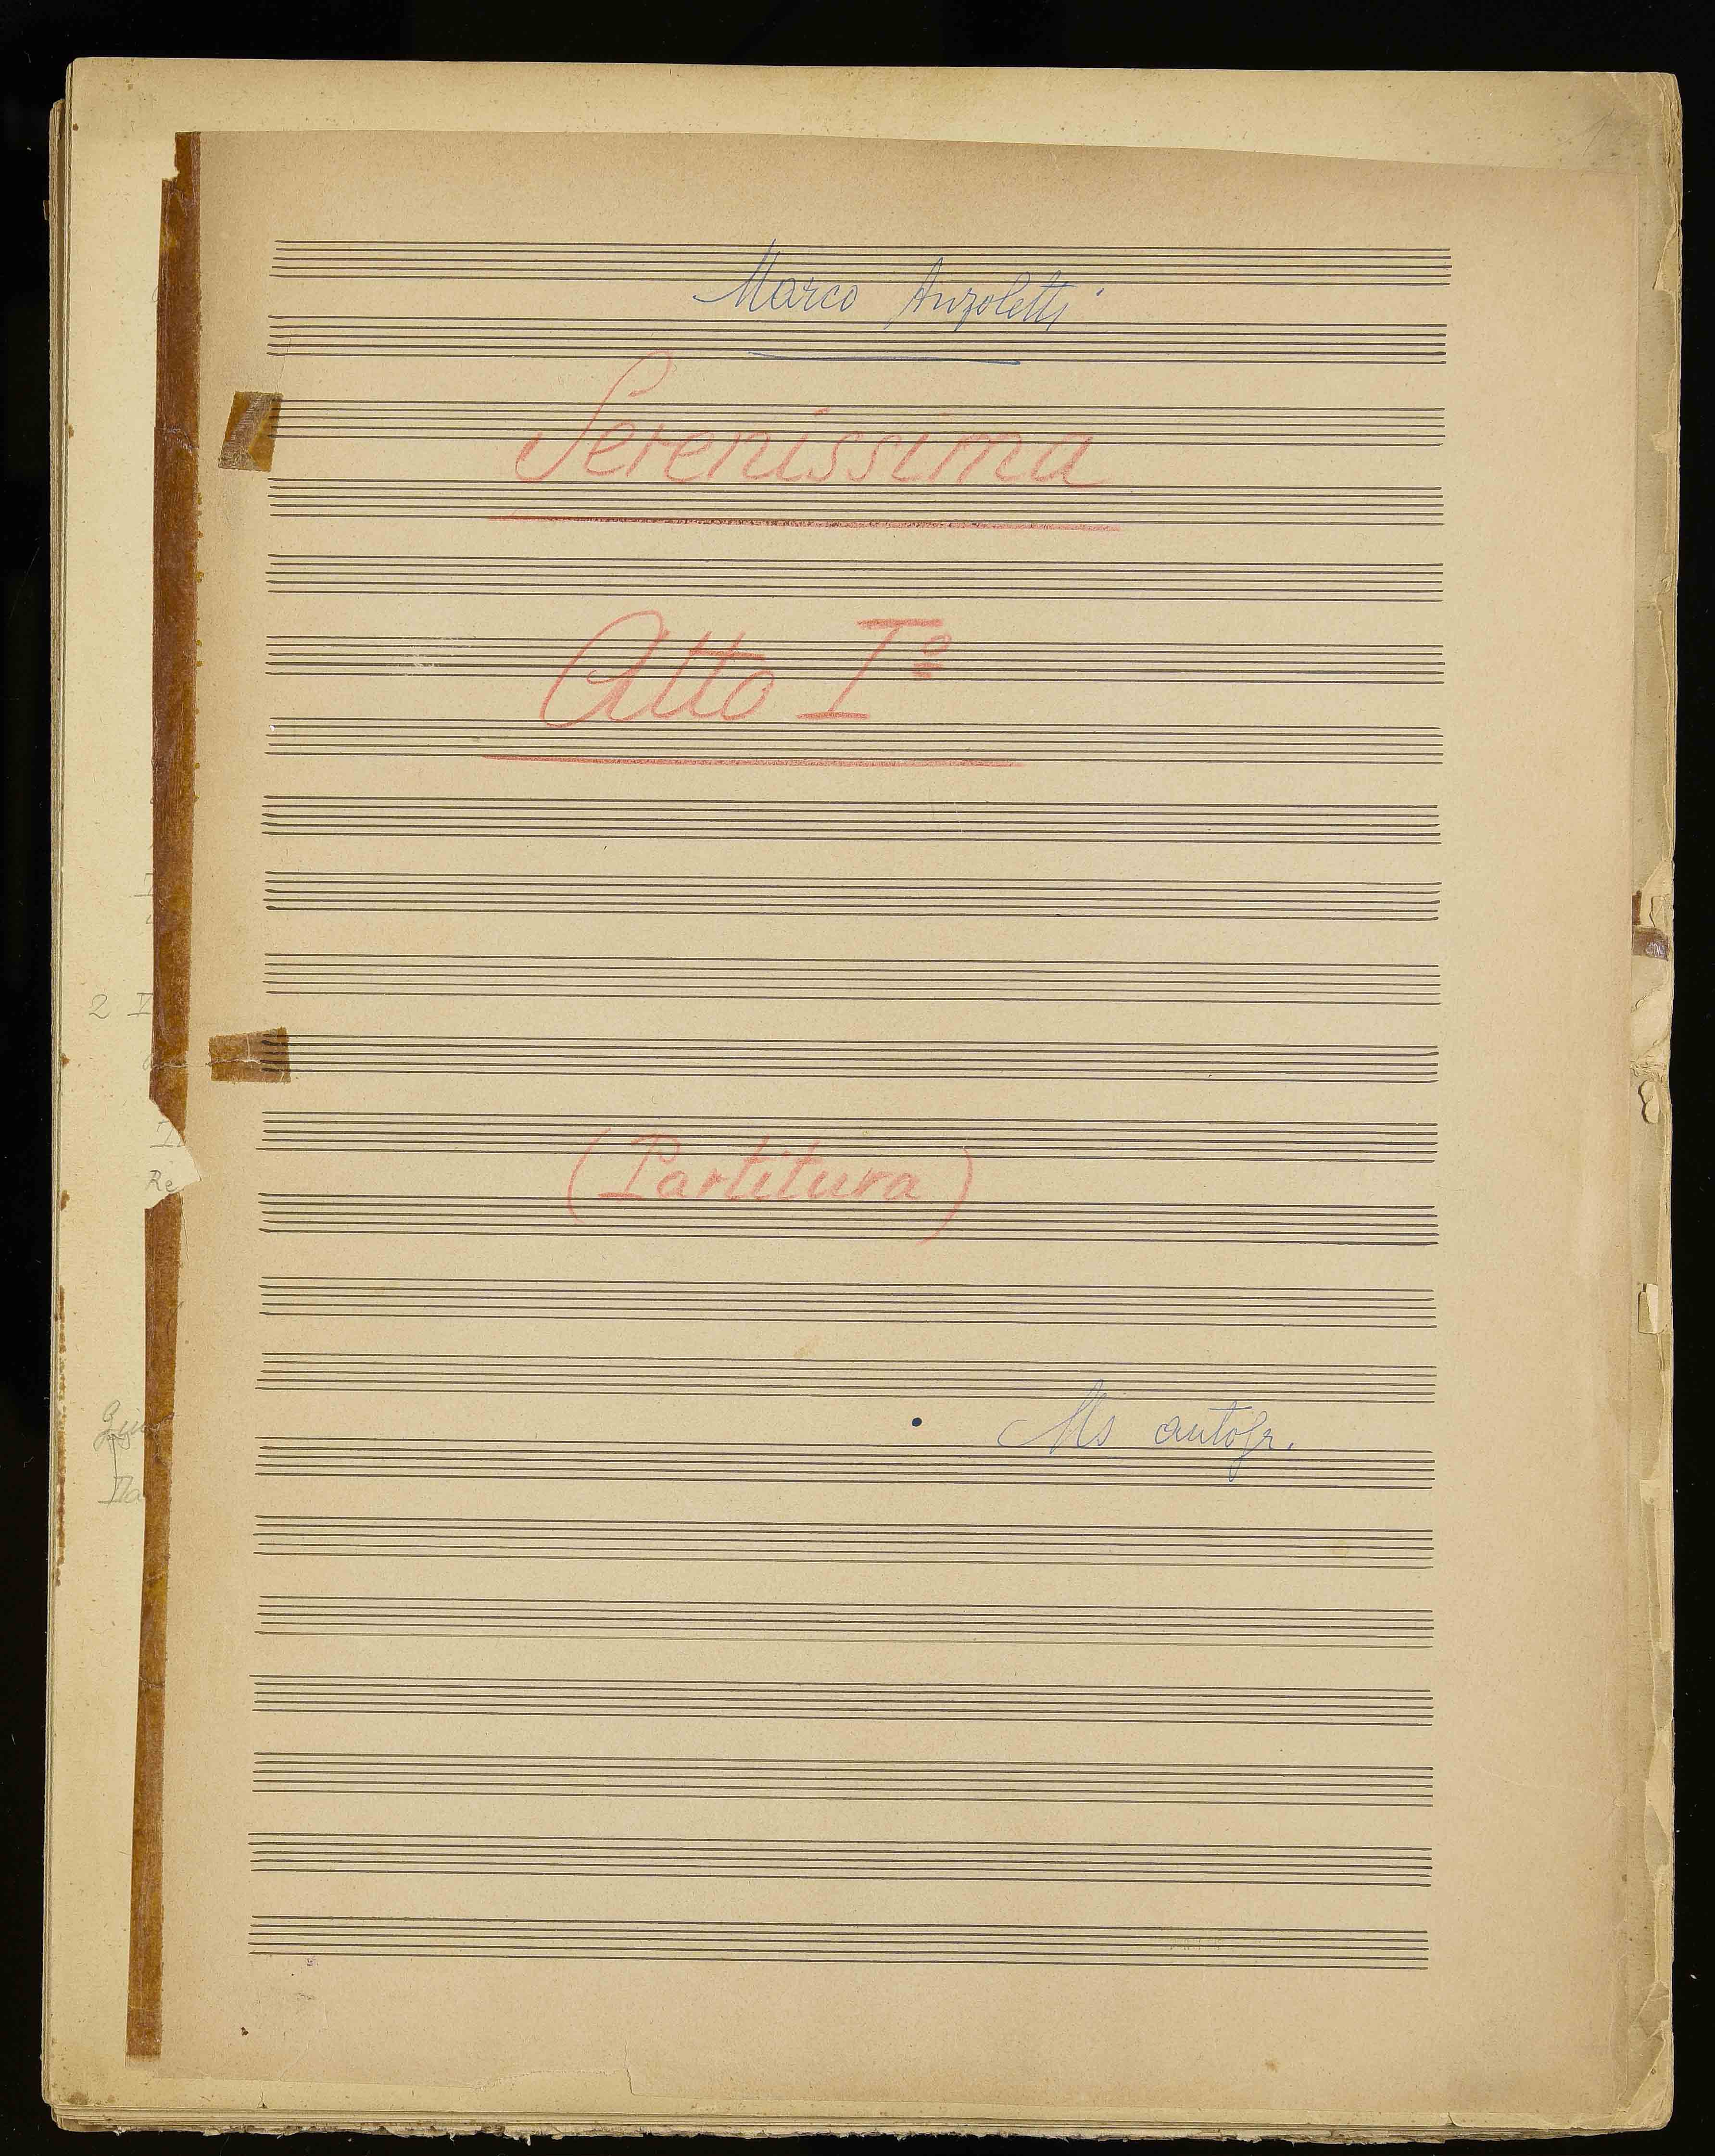 Marco Anzoletti
Serenissima
Atto Iº
2 I
(Partitura)
Re
Ms autogr.